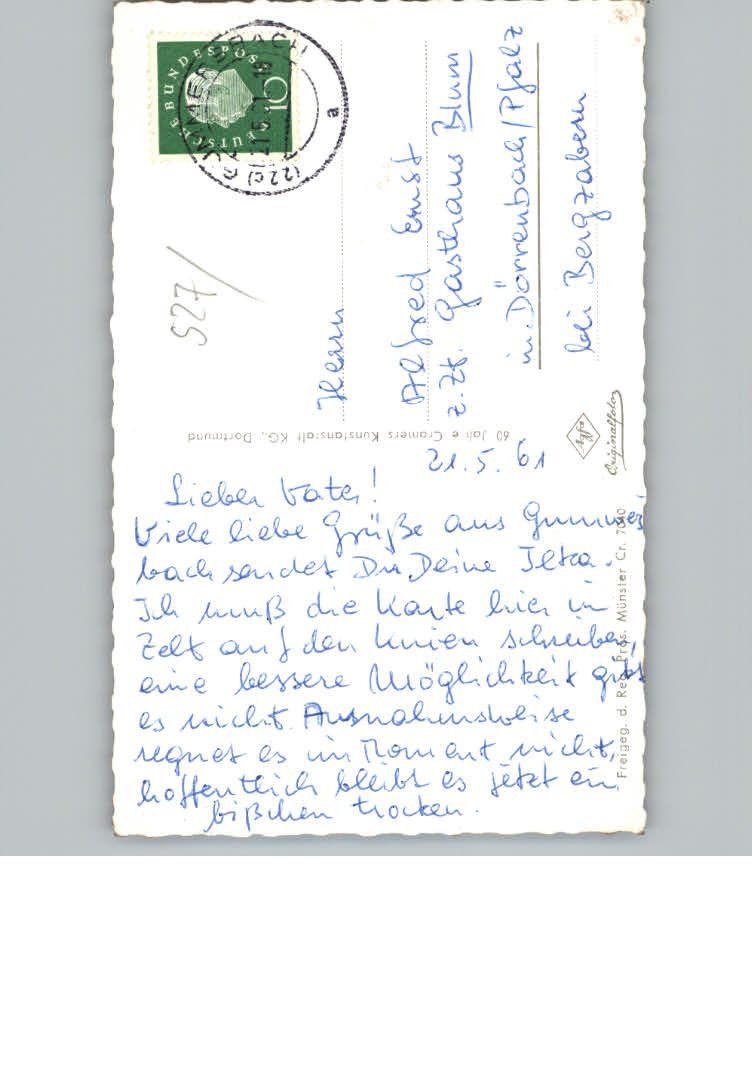 21.5.61
Lieber Vater!
Viele liebe Grüße aus Gummers
bach sendet Dir Deine
Ich muß die Karte hier im
Zelt auf den Knien schreiben,
eine bessere Möglichkeit gibt
es nicht. Ausnahmsweise
regnet es im Moment nicht,
hoffentlich bleibt es jetzt ein
bißchen trocken.
Herrn
Alfred Ernst
z. Zt. Gasthaus Blum
in Dörrenbach/Pfalz
bei Bergzabern
527/
DEUTSCHE BUNDESPOST
10
(22c) GUMMERSBACH
a
60 Jahre Cramers Kunstanstalt KG., Dortmund
Agfa
Originalfoto
Freigeg. d. Reg. Präs. Münster Cr.